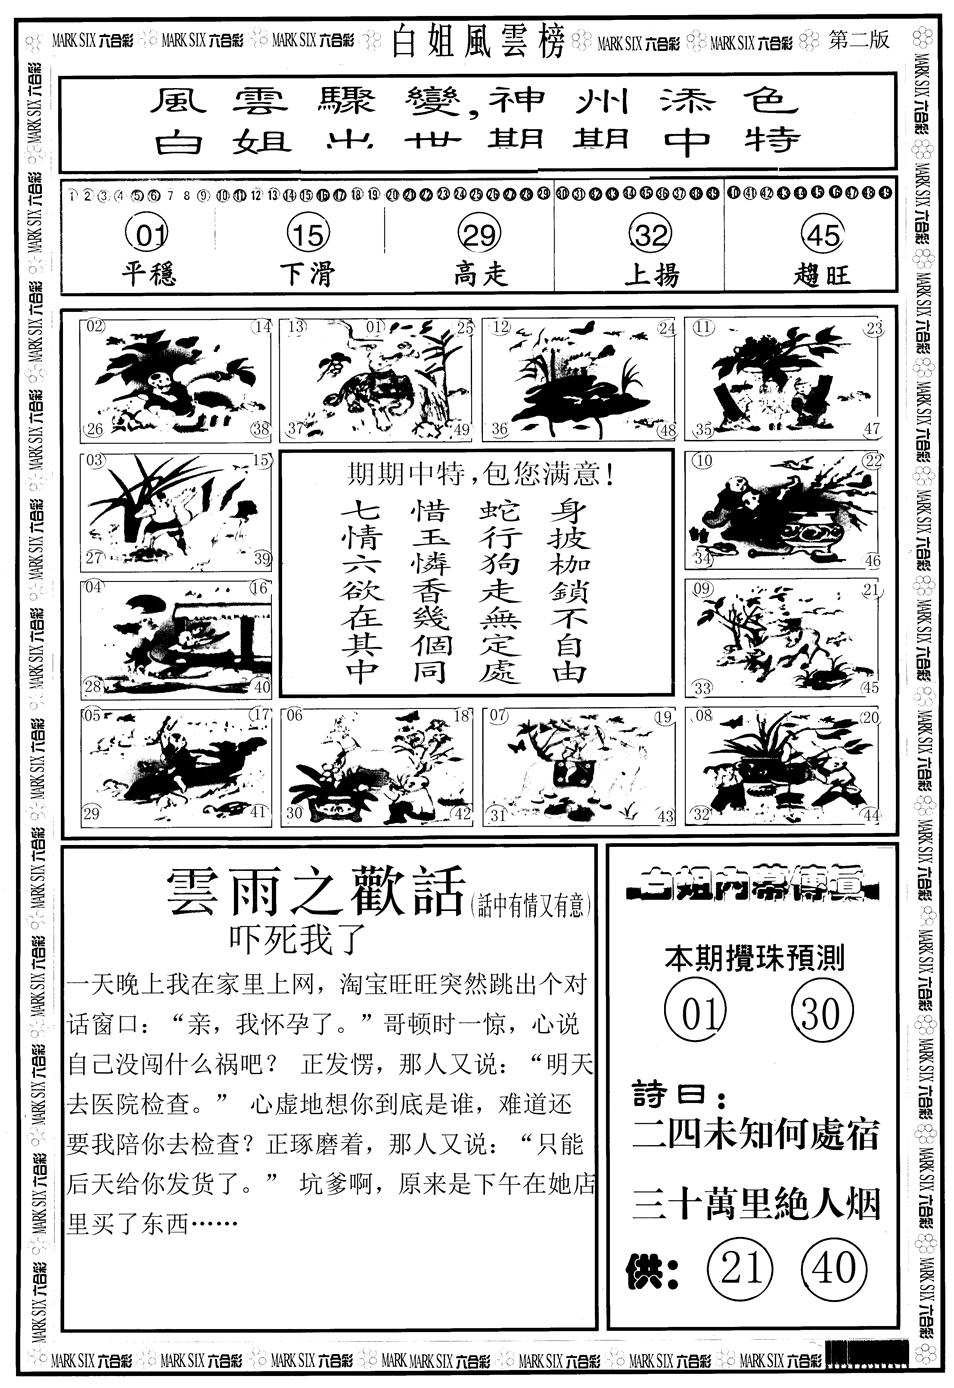 MARK SIX 六合彩 MARK SIX 六合彩 MARK SIX 六合彩 白姐風雲榜 MARK SIX 六合彩 MARK SIX 六合彩 第二版
風雲驟變,神州添色
白姐出世期期中特
1 2 3 4 5 6 7 8 9 10 11 12 13 14 15 16 17 18 19 20 21 22 23 24 25 26 27 28 29 30 31 32 33 34 35 36 37 38 39 40 41 42 43 44 45 46 47 48 49
01 15 29 32 45
平穩 下滑 高走 上揚 趨旺
02 14 13 01 25 12 24 11 23
26 38 37 49 36 48 35 47
03 15
27 39
04 16
28 40
期期中特,包您满意!
七情六欲在其中
惜玉憐香幾個同
蛇行狗走無定處
身披枷鎖不自由
10 22
34 46
09 21
33 45
05 17 06 18 07 19 08 20
29 41 30 42 31 43 32 44
雲雨之歡話(話中有情又有意)
吓死我了
一天晚上我在家里上网，淘宝旺旺突然跳出个对
话窗口：“亲，我怀孕了。”哥顿时一惊，心说
自己没闯什么祸吧？ 正发愣，那人又说：“明天
去医院检查。” 心虚地想你到底是谁，难道还
要我陪你去检查？正琢磨着，那人又说：“只能
后天给你发货了。” 坑爹啊，原来是下午在她店
里买了东西……
白姐内幕傳真
本期攪珠預測
01 30
詩曰：
二四未知何處宿
三十萬里絶人烟
供： 21 40
MARK SIX 六合彩 MARK SIX 六合彩 MARK SIX 六合彩 MARK MARK SIX 六合彩 MARK SIX 六合彩 MARK SIX 六合彩 MARK SIX 六合彩